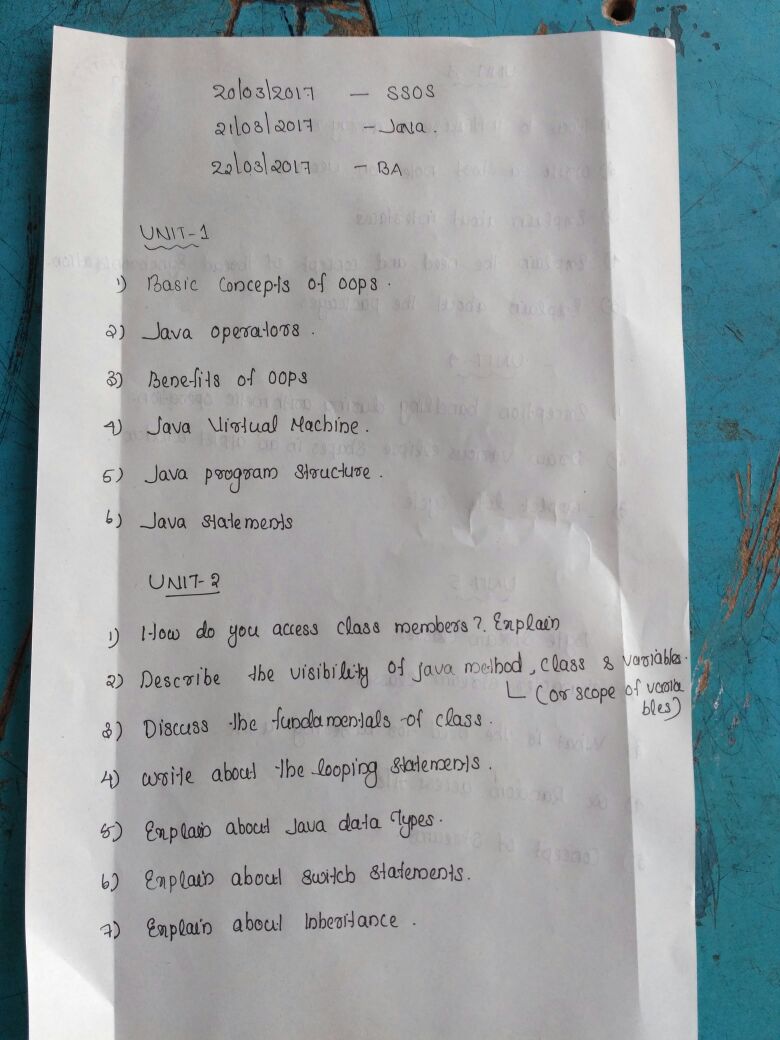 20/03/2017 - SSOS
21/03/2017 - Java.
22/03/2017 - BA
UNIT-1
1) Basic Concepts of OOPS.
2) Java operators.
3) Benefits of OOPS
4) Java Virtual Machine.
5) Java program structure.
6) Java statements
UNIT-2
1) How do you access class members?. Explain
2) Describe the visibility of java method, class & variables.
(or scope of varia
bles)
3) Discuss the fundamentals of class.
4) write about the looping statements.
5) Explain about Java data Types.
6) Explain about switch statements.
7) Explain about Inheritance.